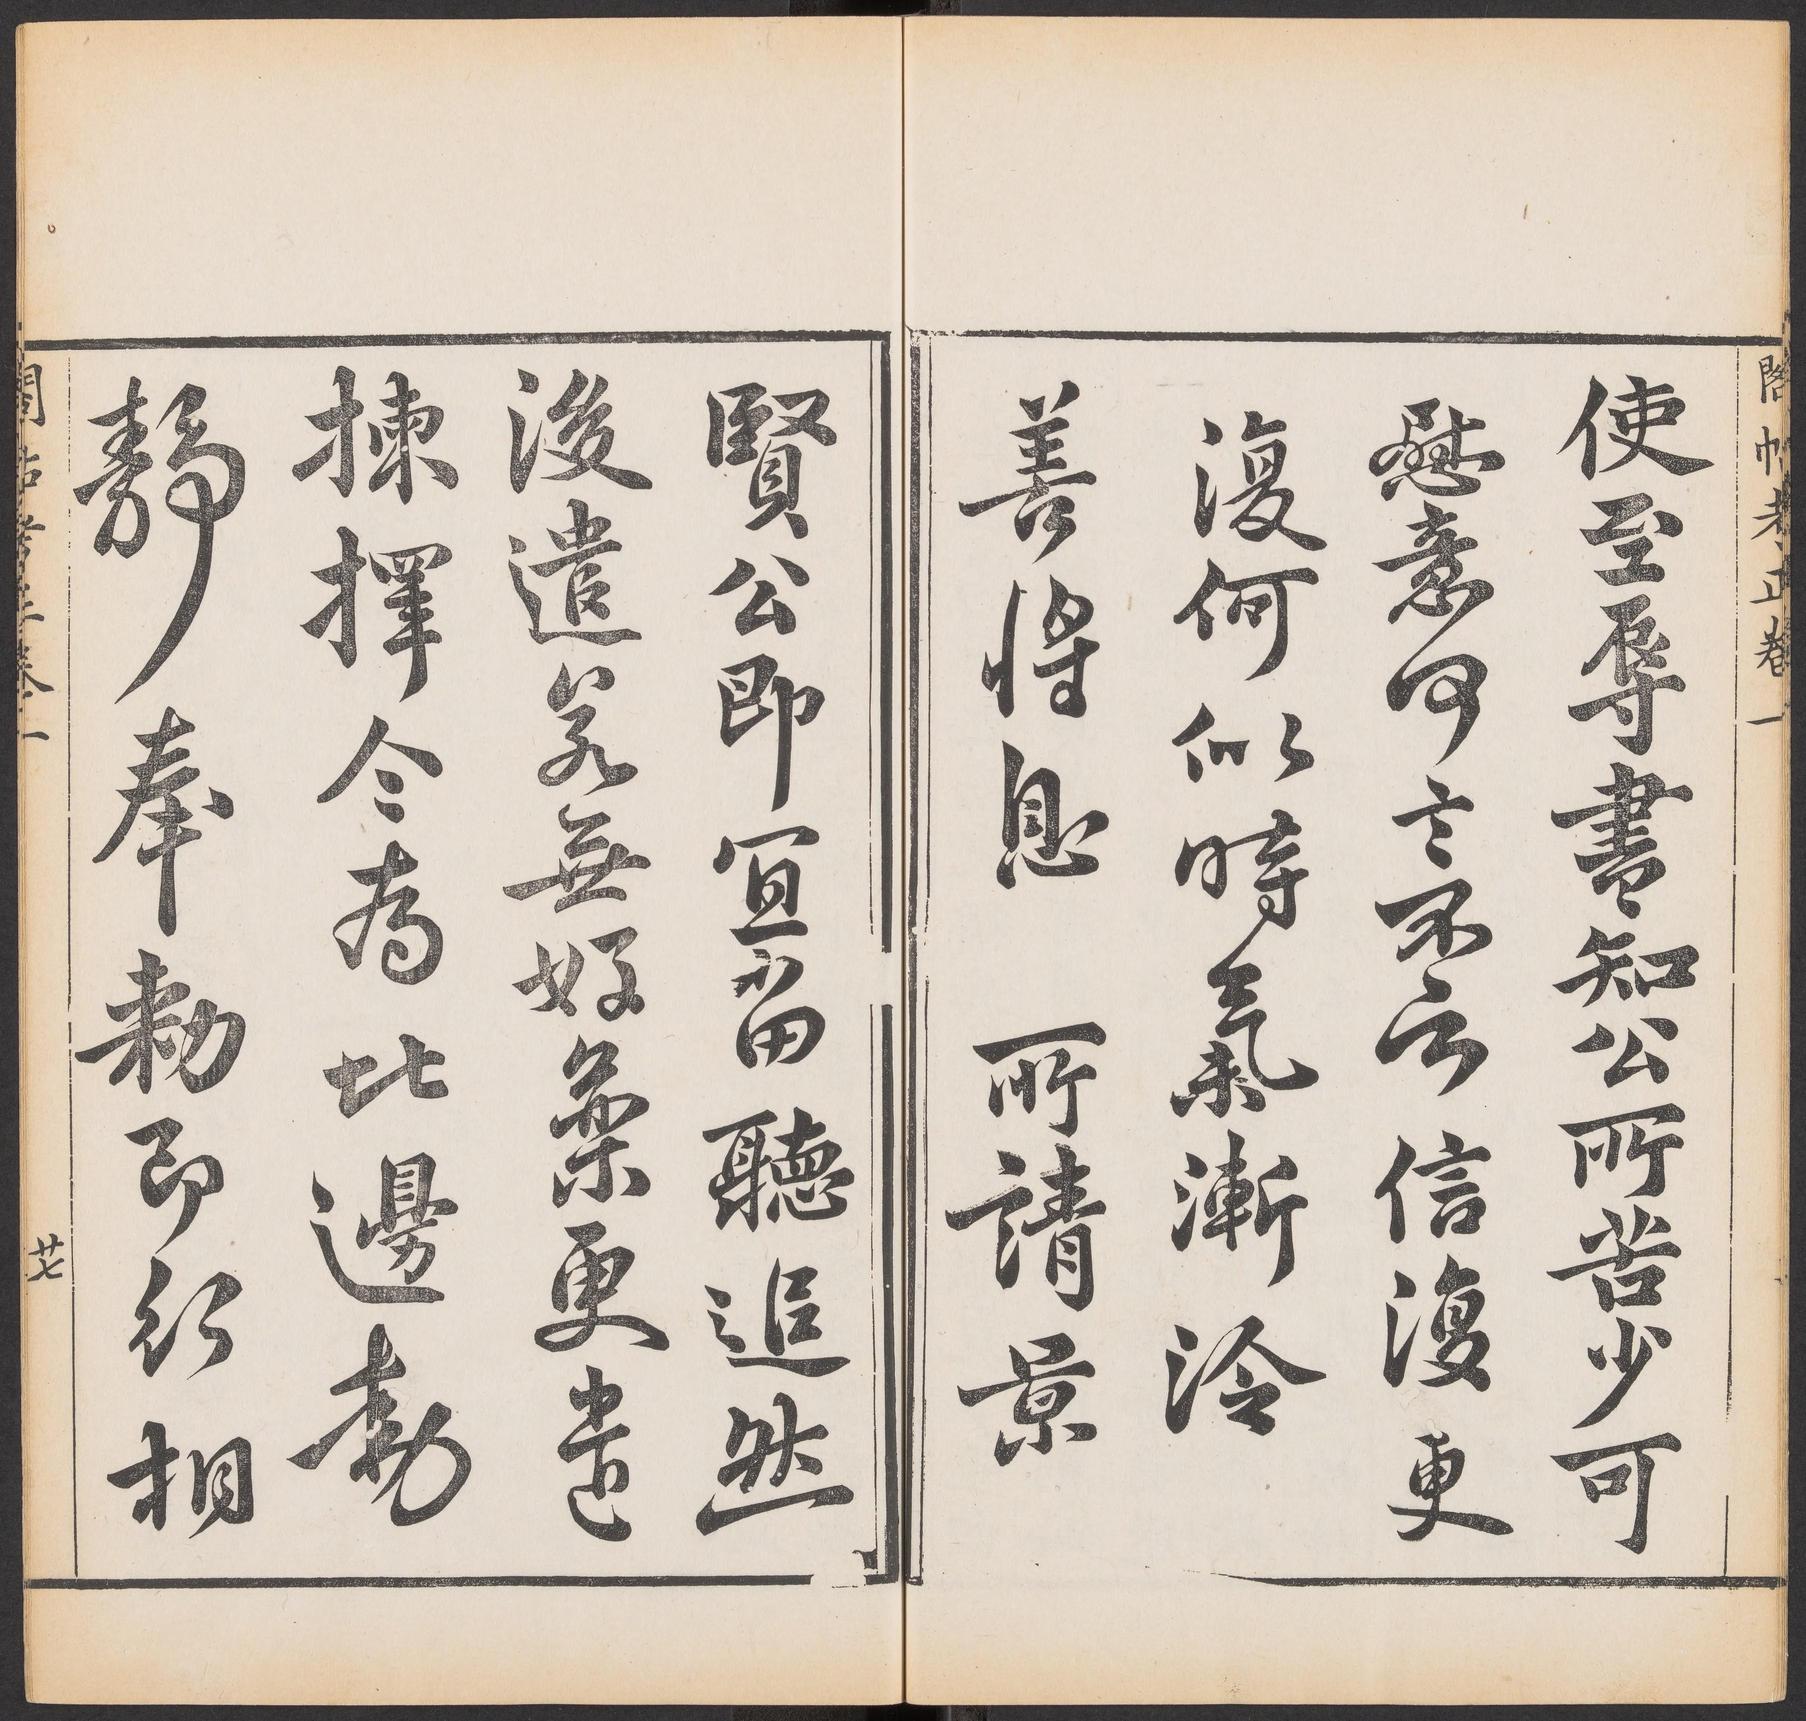 閣帖考正卷一
使至辱書知公所苦少可
慰意何言不云信復更
復何似時氣漸冷
善將息 所請景
賢公即宜留聽追然
後遣若無好藥更遣
揀擇令為此邊勅
靜奉勅即行相
閣帖考正卷一
廿七